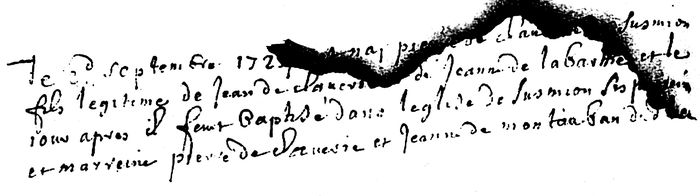 le 6d septembre 172 naj pierre de claverie susmion
fils legitime de Jean de claverie de Jeanne de labarthe et le
jour apres il feut baptisé dans leglise de susmion ses
et marreine pierre de claverie et Jeanne de montauban